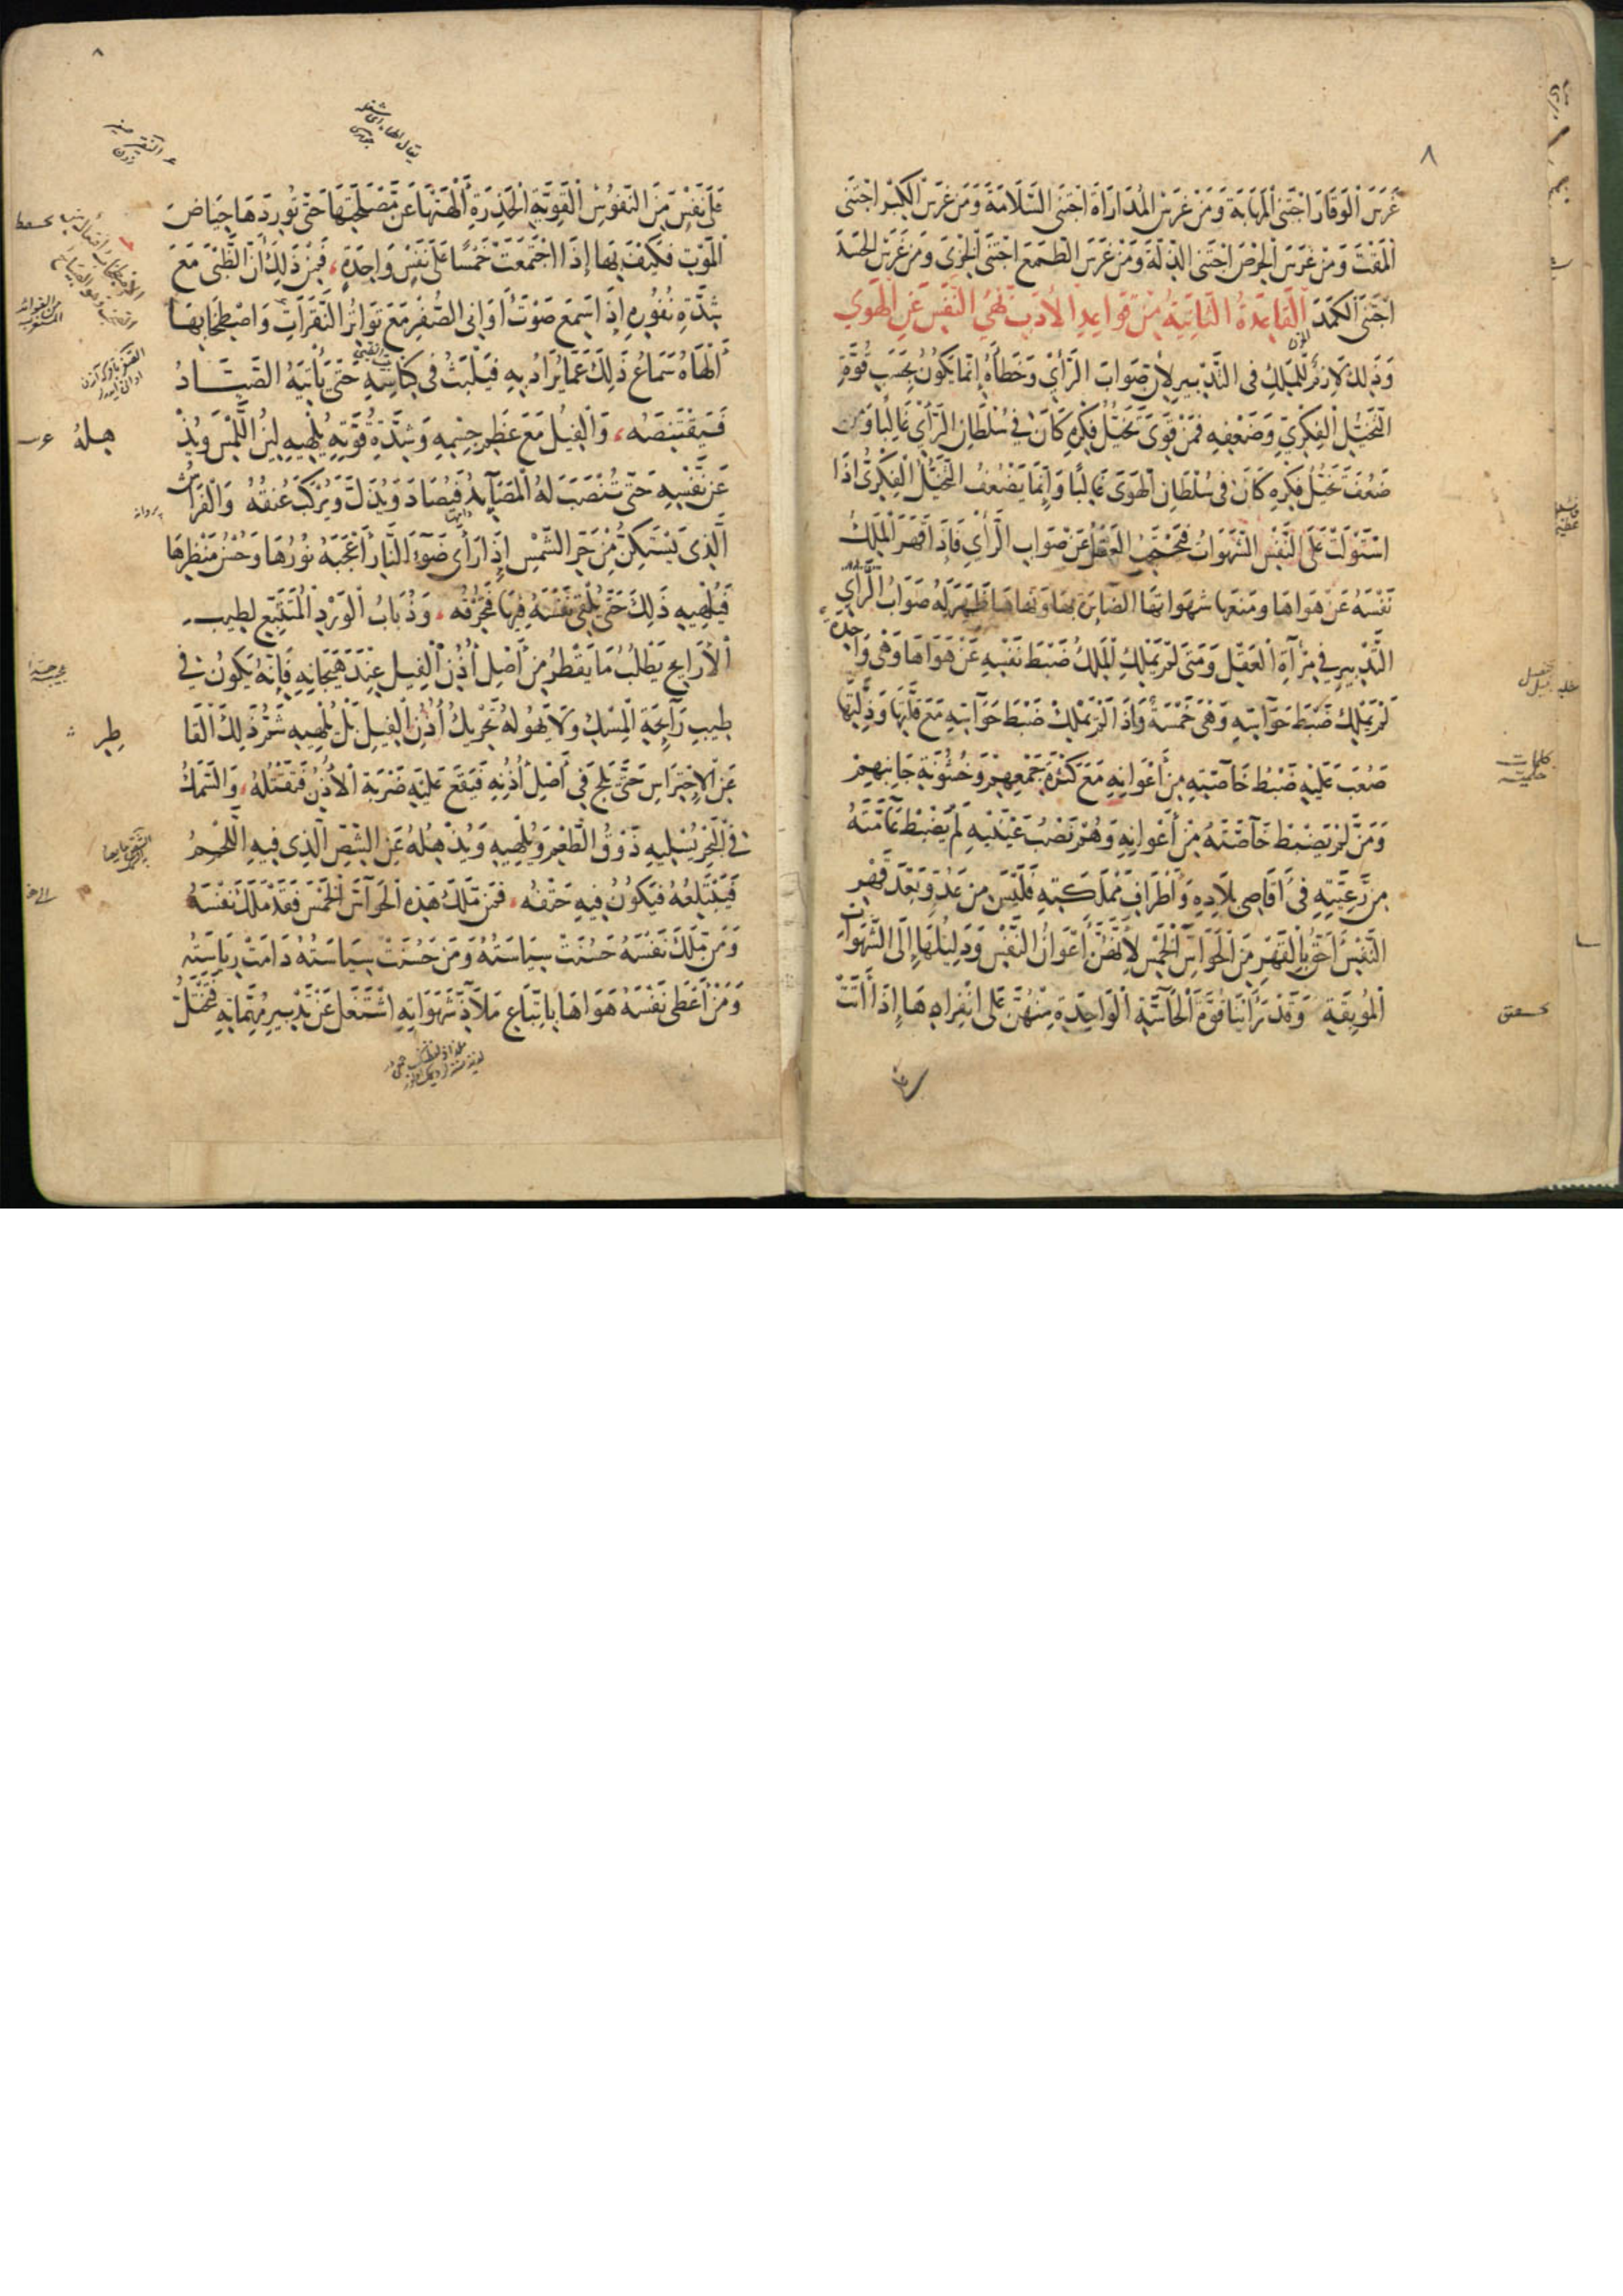 ٨
غَرَسَ الْوَقَارَ اجْتَنَى الْمَهَابَةَ وَمَنْ غَرَسَ الْمُدَارَاةَ اجْتَنَى السَّلَامَةَ وَمَنْ غَرَسَ الْكِبْرَ اجْتَنَى
الْمَقْتَ وَمَنْ غَرَسَ الْحِرْصَ اجْتَنَى الذِّلَّةَ وَمَنْ غَرَسَ الطَّمَعَ اجْتَنَى الْخِزْىَ وَمَنْ غَرَسَ الْحَسَدَ
اجْتَنَى الْكَمَدَ الْقَاعِدَةُ الثَّانِيَةُ مِنْ قَوَاعِدِ الْأَدَبِ نَهْىُ النَّفْسِ عَنِ الْهَوَى
وَذَلِكَ لَازِمٌ لِلْمَلِكِ فِى التَّدْبِيرِ لِأَنَّ صَوَابَ الرَّأْىِ وَخَطَأَهُ إِنَّمَا يَكُونُ بِحَسَبِ قُوَّةِ
التَّخَيُّلِ الْفِكْرِىِّ وَضَعْفِهِ فَمَنْ قَوِىَ تَخَيُّلُ فِكْرِهِ كَانَ فِى سُلْطَانِ الرَّأْىِ غَالِبًا وَمَنْ
ضَعُفَ تَخَيُّلُ فِكْرِهِ كَانَ فِى سُلْطَانِ الْهَوَى غَالِبًا وَإِنَّمَا يَضْعُفُ التَّخَيُّلُ الْفِكْرِىُّ إِذَا
اسْتَوْلَتْ عَلَى النَّفْسِ الشَّهَوَاتُ الْعَقْلَ عَنْ صَوَابِ الرَّأْىِ فَإِذَا قَهَرَ الْمَلِكُ
نَفْسَهُ عَنْ هَوَاهَا وَمَنَعَهَا شَهَوَاتِهَا الضَّائِرَةَ بِهَا وَنَهَاهَا ظَهَرَ لَهُ صَوَابُ الرَّأْىِ
التَّدْبِيرِ فِى مِرْآةِ الْعَقْلِ وَمَتَى لَمْ يَمْلِكِ الْمَلِكُ ضَبْطَ نَفْسِهِ عَنْ هَوَاهَا وَهْىَ وَاحِدَةٌ
لَمْ يَمْلِكْ ضَبْطَ حَوَاسِّهِ وَهْىَ خَمْسَةٌ وَإِذَا لَمْ يَمْلِكْ ضَبْطَ حَوَاسِّهِ مَعَ قِلَّتِهَا وَذِلَّتِهَا
صَعُبَ عَلَيْهِ ضَبْطُ خَاصَّتِهِ مِنْ أَعْوَانِهِ مَعَ كَثْرَةِ جَمْعِهِمْ وَخُشُونَةِ جَانِبِهِمْ
وَمَنْ لَمْ يَضْبِطْ خَاصَّتَهُ مِنْ أَعْوَانِهِ وَهُمْ نَصْبُ عَيْنَيْهِ لَمْ يَضْبِطْ عَامَّتَهُ
مِنْ رَعِيَّتِهِ فِى أَقَاصِى بِلَادِهِ وَأَطْرَافِ مَمْلَكَتِهِ فَلَيْسَ مِنْ عَدُوٍّ بَعْدَ قَهْرِ
النَّفْسِ أَحَقُّ بِالْقَهْرِ مِنَ الْحَوَاسِّ الْخَمْسِ لِأَنَّهُنَّ أَعْوَانُ النَّفْسِ وَدَلِيلُهَا إِلَى الشَّهَوَاتِ
الْمُوبِقَةِ وَقَدْ رَأَيْنَا قُوَّةَ الْحَاسَّةِ الْوَاحِدَةِ مِنْهُنَّ عَلَى انْفِرَادِهَا إِذَا أَتَتْ
كلمات حكمية
٨
عَلَى نَفْسٍ مِنَ النُّفُوسِ الْقَوِيَّةِ الْحَذِرَةِ أَلْهَتْهَا عَنْ مَصْلَحَتِهَا حَتَّى تُورِدَهَا حِيَاضَ
الْمَوْتِ فَكَيْفَ بِهَا إِذَا اجْتَمَعَتْ خَمْسًا عَلَى نَفْسٍ وَاحِدَةٍ، فَمِنْ ذَلِكَ أَنَّ الظَّبْىَ مَعَ
شِدَّةِ نُفُورِهِ إِذَا سَمِعَ صَوْتَ أَوَانِى الصُّفْرِ مَعَ تَوَاتُرِ النَّقَرَاتِ وَاصْطِخَابِهَا
أَلْهَاهُ سَمَاعُ ذَلِكَ عَمَّا يُرَادُ بِهِ فَيَلْبَثُ فِى كِنَاسِهِ حَتَّى يَأْتِيَهُ الصَّيَّادُ
فَيَقْتَنِصَهُ، وَالْفِيلُ مَعَ عِظَمِ جِسْمِهِ وَشِدَّةِ قُوَّتِهِ يُلْهِيهِ لِينُ اللَّمْسِ وَيُذْ
هِلُهُ
عَنْ نَفْسِهِ حَتَّى تُنْصَبَ لَهُ الْمَصَايِدُ فَيُصَادَ وَيُذَلَّ وَيُرْكَبَ عُنُقُهُ وَالْفَرَاشُ
الَّذِى يَسْتَكِنُّ مِنْ حَرِّ الشَّمْسِ إِذَا رَأَى ضَوْءَ النَّارِ أَعْجَبَهُ نُورُهَا وَحُسْنُ مَنْظَرِهَا
فَيُلْهِيهِ ذَلِكَ حَتَّى يُلْقِىَ نَفْسَهُ فِيهَا فَتُحْرِقُهُ، وَذُبَابُ الْوَرْدِ الْمُتَتَبِّعُ لِطِيبِ
الْأَرَايِحِ يَطْلُبُ مَا يَقْطُرُ مِنْ أَصْلِ أُذُنِ الْفِيلِ عِنْدَ هَيَجَانِهِ فَإِنَّهُ يَكُونُ فِى
طِيبِ رَائِحَةِ الْمِسْكِ وَلَا يَهُولُهُ تَحْرِيكُ أُذُنِ الْفِيلِ بَلْ يُلْهِيهِ شَمُّ ذَلِكَ الْقَا
طِرِ
عَنِ الْاِحْتِرَاسِ حَتَّى يَلِجَ فِى أَصْلِ أُذُنِهِ فَيَقَعُ عَلَيْهِ ضَرْبَةُ الْأُذُنِ فَتَقْتُلُهُ، وَالسَّمَكُ
فِى الْبَحْرِ يُسْلِيهِ ذَوْقُ الطُّعْمِ وَيُلْهِيهِ وَيُذْهِلُهُ عَنِ الشِّصِّ الَّذِى فِيهِ اللَّحْمُ
فَيَبْتَلِعُهُ فَيَكُونُ فِيهِ حَتْفُهُ، فَمَنْ مَلَكَ هَذِهِ الْحَوَاسَّ الْخَمْسَ فَقَدْ مَلَكَ نَفْسَهُ
وَمَنْ مَلَكَ نَفْسَهُ حَسُنَتْ سِيَاسَتُهُ وَمَنْ حَسُنَتْ سِيَاسَتُهُ دَامَتْ رِيَاسَتُهُ
وَمَنْ أَعْطَى نَفْسَهُ هَوَاهَا بِاتِّبَاعِ مَلَاذِّ شَهَوَاتِهِ اشْتَغَلَ عَنْ تَدْبِيرِ مُهِمَّاتِهِ فَتَخْتَلُّ